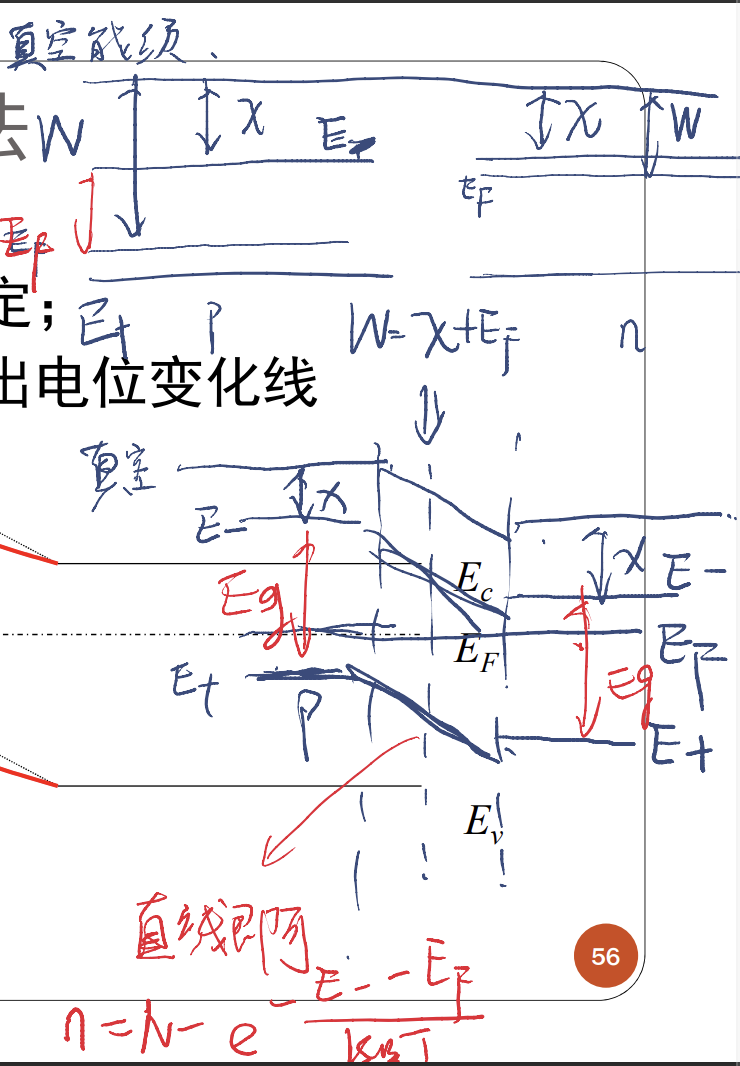 真空能级.
去 W χ E- χ W
EF
EF
定；
E+ P W= χ+EF n
出电位变化线
真空
χ
E-
χ E-
Eg Ec
EF EF
E+ Eg
P E+
Ev
直线即可
56
n = N- e - E- - EF
KBT